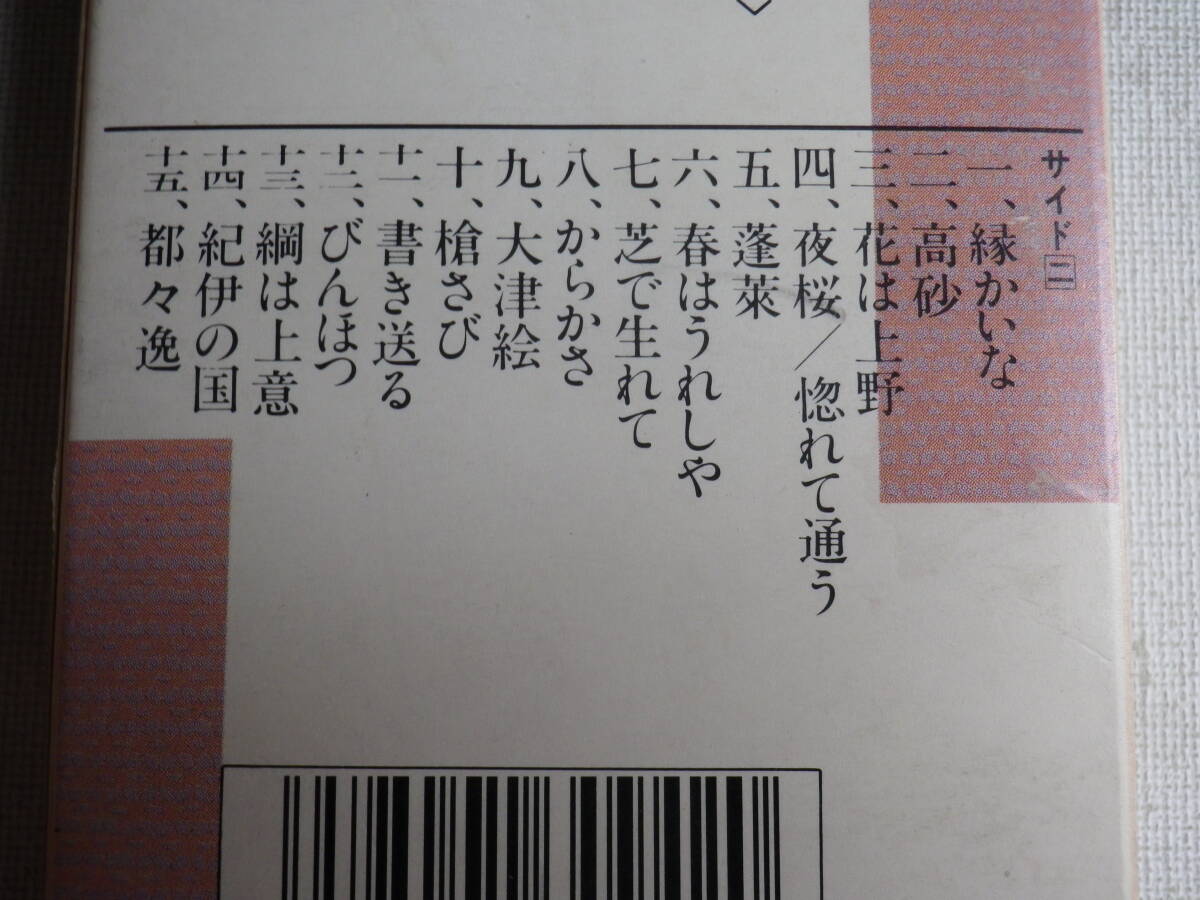 サイド二
一、縁かいな
二、高砂
三、花は上野
四、夜桜／惚れて通う
五、蓬莱
六、春はうれしや
七、芝で生れて
八、からかさ
九、大津絵
十、槍さび
十一、書き送る
十二、びんほつ
十三、綱は上意
十四、紀伊の国
十五、都々逸